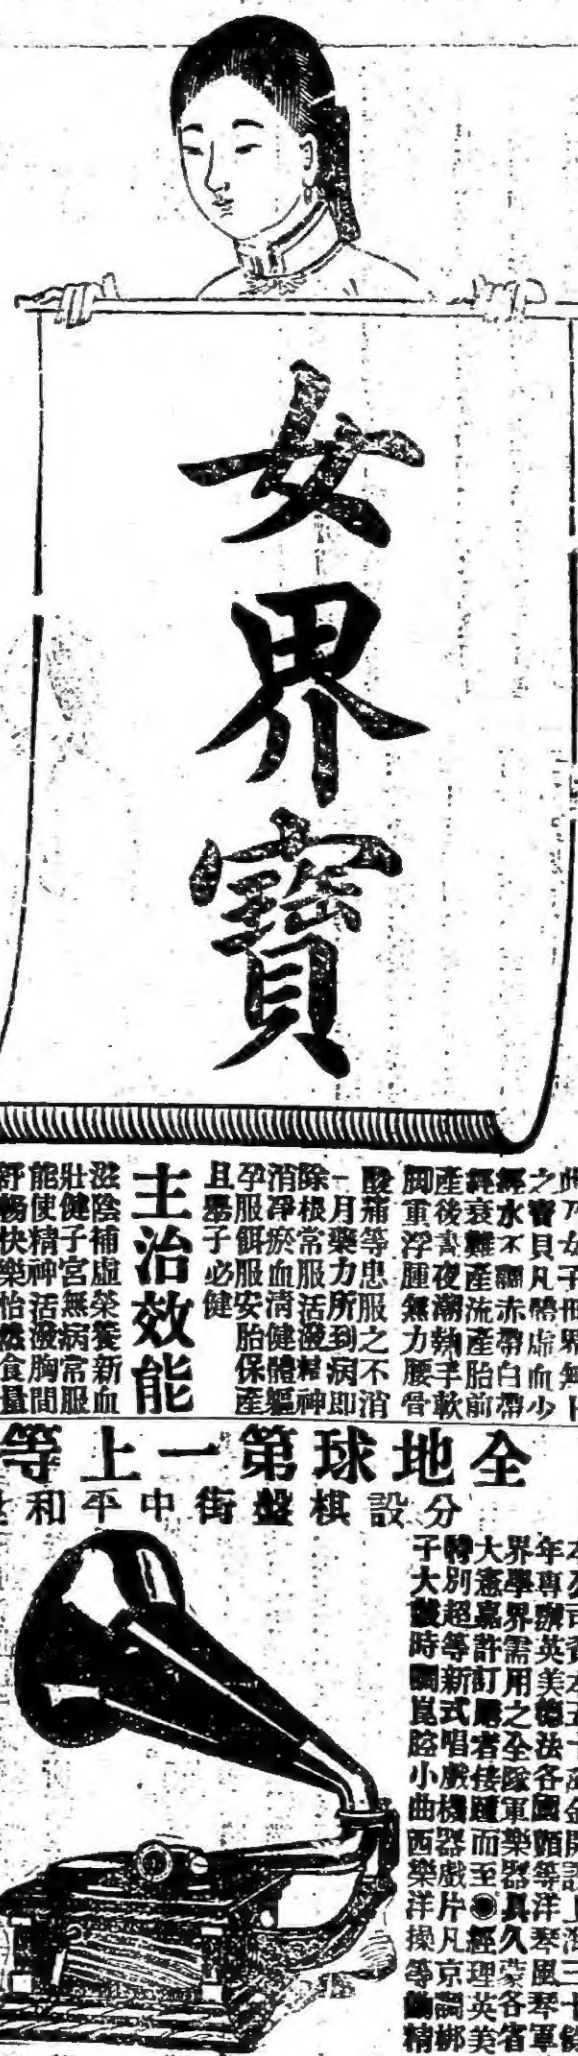 女界寶
之寶貝凡體虛血少
經水不調赤帶白帶
經衰難產流產胎前
產後晝夜潮熱手軟
脚重浮腫無力腰骨
酸痛等患服之不消
一月藥力所到病即
除根常服活潑精神
消凈瘀血清健體軀
孕服餌服安胎保產
且舉子必健
主治效能
滋陰補虛榮養新血
壯健子宮無病常服
能使精神活潑胸間
舒暢快樂怡然食量
全地球第一上等
分設棋盤街中平和
年專辦英美德法各國頭等洋琴風琴軍
界學界需用之全隊軍樂器具久蒙各省
大憲嘉許訂購者接踵而至◉經理英美
特別超等新式唱戲機器戲片凡京調梆
子大鼓時調崑腔小曲西樂洋操等